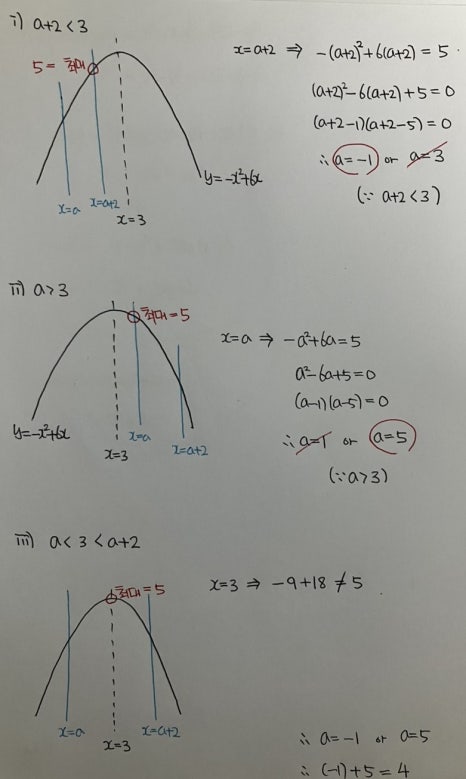 i) a+2<3
x=a+2 ⇒ -(a+2)²+6(a+2) = 5
5 = 최대
(a+2)²-6(a+2)+5=0
(a+2-1)(a+2-5)=0
∴ a=-1 or a=3
y=-x²+6x
(∵ a+2<3)
x=a x=a+2
x=3
ii) a>3
최대=5
x=a ⇒ -a²+6a=5
a²-6a+5=0
(a-1)(a-5)=0
y=-x²+6x
x=a
∴ a=1 or a=5
x=3
x=a+2
(∵a>3)
iii) a<3<a+2
최대=5
x=3 ⇒ -9+18≠5
x=a x=a+2
x=3
∴ a=-1 or a=5
∴ (-1)+5=4